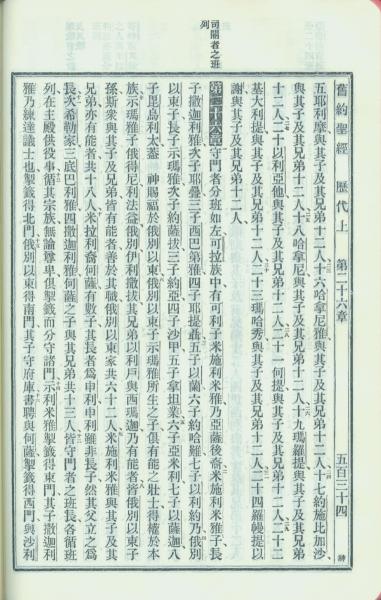 舊約聖經 歷代上 第二十六章 五百三十四
司閽者之班列
五耶利摩與其子及其兄弟十二人十六哈拿尼雅與其子及其兄弟十二人十七約施比加沙
與其子及其兄弟十二人十八哈拿尼與其子及其兄弟十二人十九瑪羅提與其子及其兄弟
十二人二十以利亞他與其子及其兄弟十二人二十一何提與其子及其兄弟十二人二十二
基大利提與其子及其兄弟十二人二十三瑪哈秀與其子及其兄弟十二人二十四羅幔提以
謝與其子及其兄弟十二人
第二十六章守門者分班如左可拉族中有可利子米施利米雅乃亞薩後裔米施利米雅子長
子撒迦利雅次子耶疊三子西巴第雅四子耶提聶五子以蘭六子約哈難七子以利約乃俄別
以東子長子示瑪雅次子約薩拔三子約亞四子沙甲五子拿坦業六子亞米利七子以薩迦八
子毘烏利太蓋 神賜福於俄別以東俄別以東子示瑪雅所生之子俱有能之壯士得權於本
族示瑪雅子俄得尼利法益俄別伊利撒拔其兄弟以利戶與西瑪迦乃有能者皆俄別以東子
孫斯衆與其子及兄弟皆有能者善於其職俄別以東家共六十二人米施利米雅與其子及其
兄弟亦有能者共十八人米拉利裔何薩有數子其長者爲申利申利雖非長子然其父立之爲
長次希勒家三底巴利雅四撒迦利雅何薩之子與其兄弟共十三人皆守門者之班長各循班
列在主殿供役事循其宗族無論尊卑俱掣籤而分守諸門示利米雅掣籤得東門其子撒迦利
雅乃練達議士也掣籤得北門俄別以東得南門其子守府庫書聘與何薩掣籤得西門與沙利